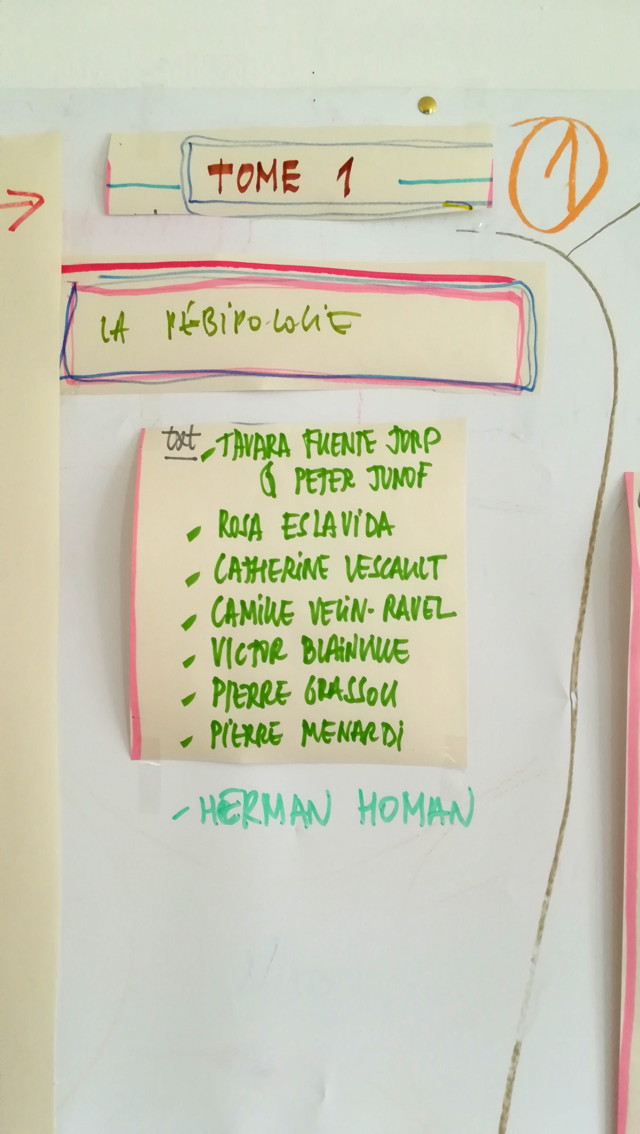 TOME 1
1
LA PÉBIPOLOGIE
txt
TAVARA FUENTE JORP
& PETER JUNOF
ROSA ESLAVIDA
CATHERINE LESCAULT
CAMILLE VELIN-RAVEL
VICTOR BLAINVILLE
PIERRE GRASSOU
PIERRE MENARDI
- HERMAN HOMAN